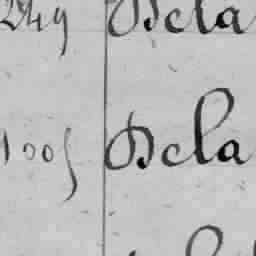 249 Dela
1005 Dela